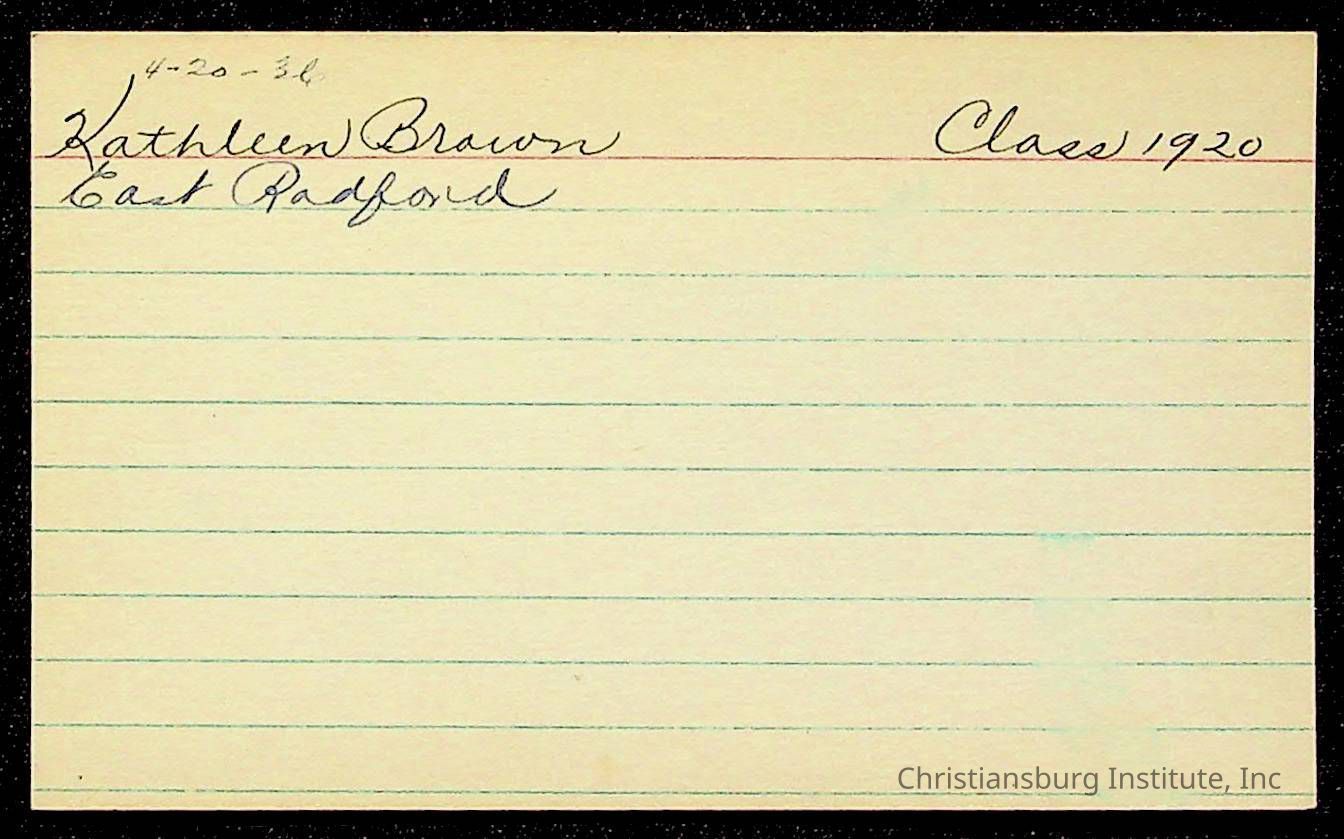 4-20-36
Kathleen Brown Class 1920
East Radford
Christiansburg Institute, Inc